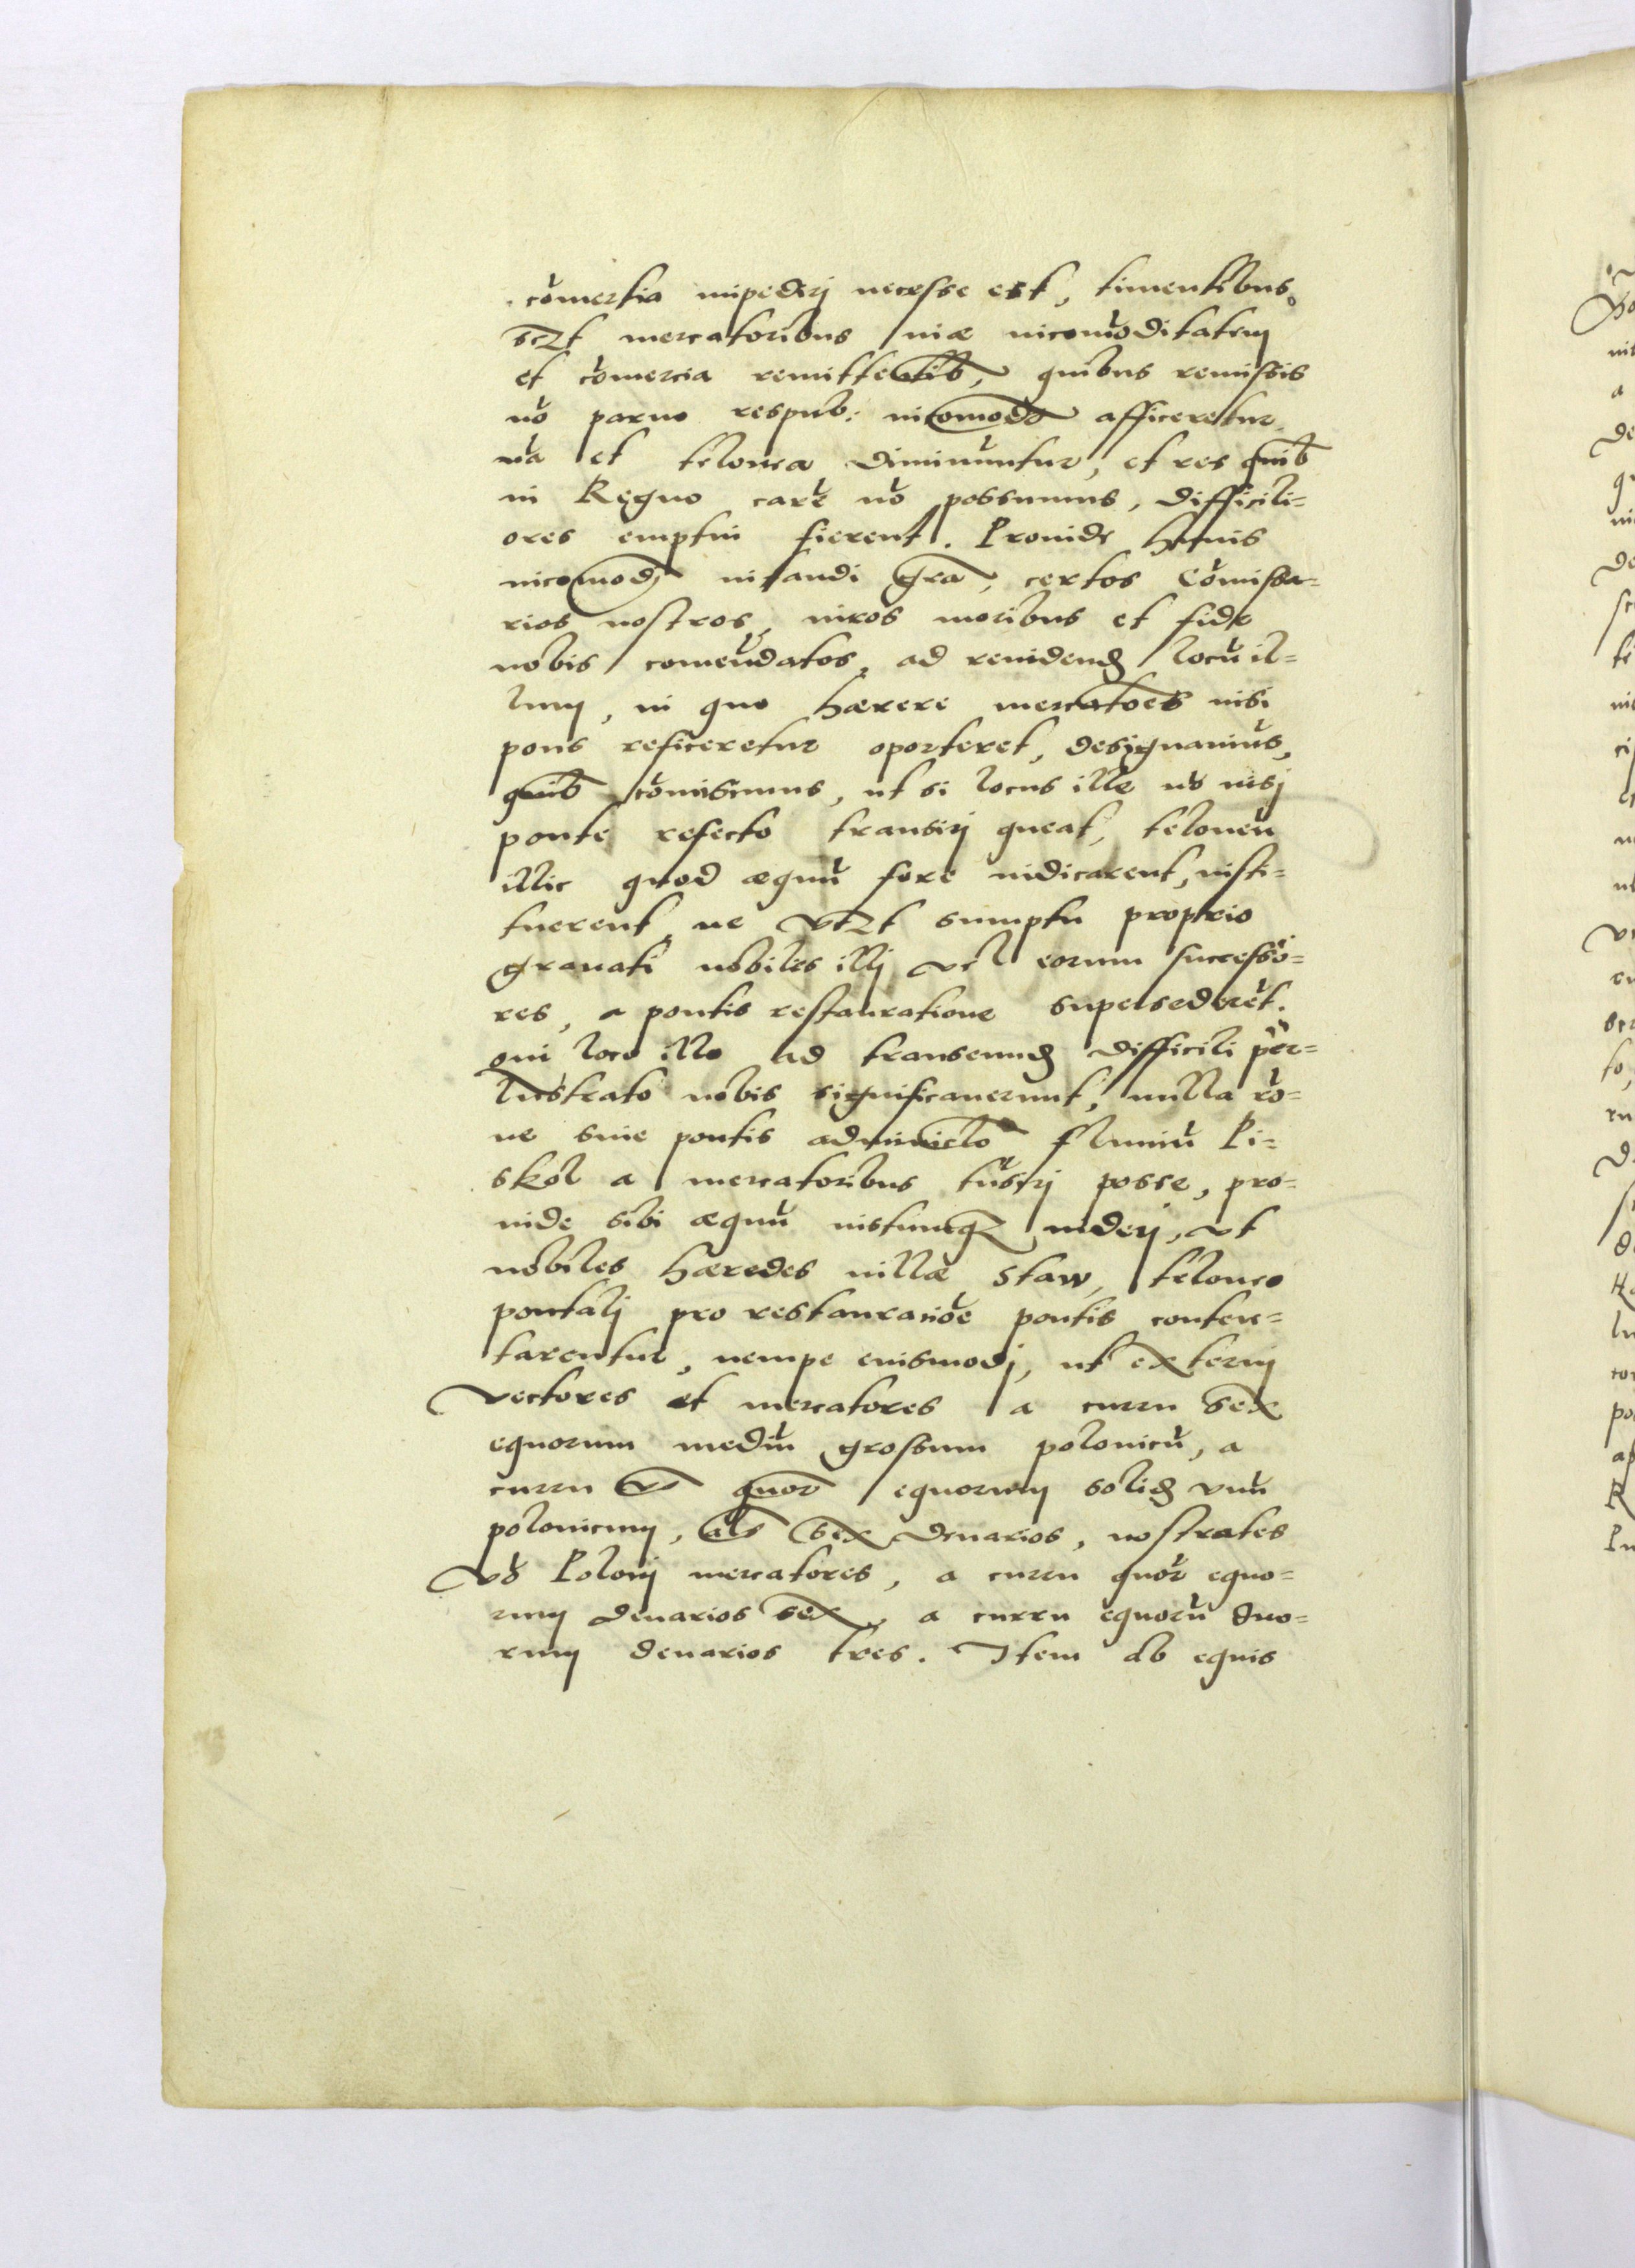 cōmertia impediri necesse est, timentibus
sczt mercatoribus viæ incom̄oditatem
et cōmercia remittentib, quibus remissis
nō paruo respub: incomodo afficeretur
nā et telonea diminuuntur, et res quib
in Regno carē nō possumus, difficili=
ores emptu fierent. Prouide huius
incomodj vitandi gra, certos Cōmissa=
rios nostros, viros moribus et fide
nobis comēndatos, ad reuidend locū il=
lum, in quo hærere mercatoēs nisi
pons reficeretur oporteret, designauimus,
quib cōmisimus, ut si locus ille nō nisj
ponte refecto transirj queat, teloneū
illic quod æquū fore iudicarent, insti=
tuerent, ne vtzt sumptu proprio
grauati nobiles illj vel eorum successo=
res, a pontis restauratione supersederēt.
qui loco illo ad transeund difficili per=
lustrato nobis significauerunt, nulla rō=
ne sine pontis adminiclo fluuiū Pi=
skol a mercatoribus posse, pro=
inde sibi æquū iustumqz viderj, vt
nobiles hæredes villæ Staw, teloneo
pontalj pro restauracioē pontis conten=
tarentur, nempe eiusmodj, ut externj
vectores et mercatores a curru sex
equorum mediū grossum polonicū, a
curru v̄ quor equorum solid vnū
polonicum, als sex denarios, nostrates
vō Polonj mercatores, a curru quor equo=
rum denarios sex, a curru equorū duo=
rum denarios tres. Item ab equis